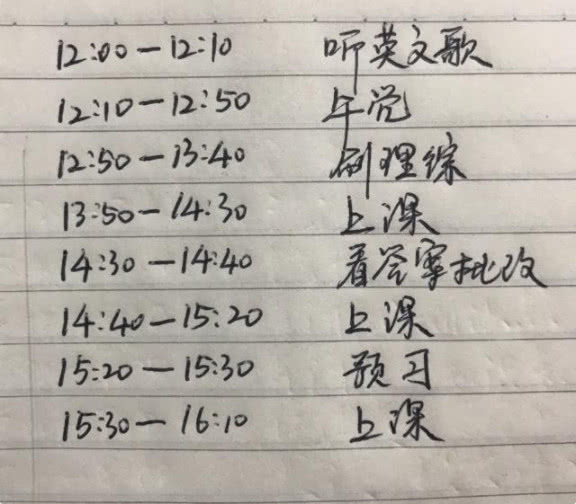 12:00—12:10 听英文歌
12:10—12:50 午觉
12:50—13:40 刷理综
13:50—14:30 上课
14:30—14:40 看答案批改
14:40—15:20 上课
15:20—15:30 预习
15:30—16:10 上课